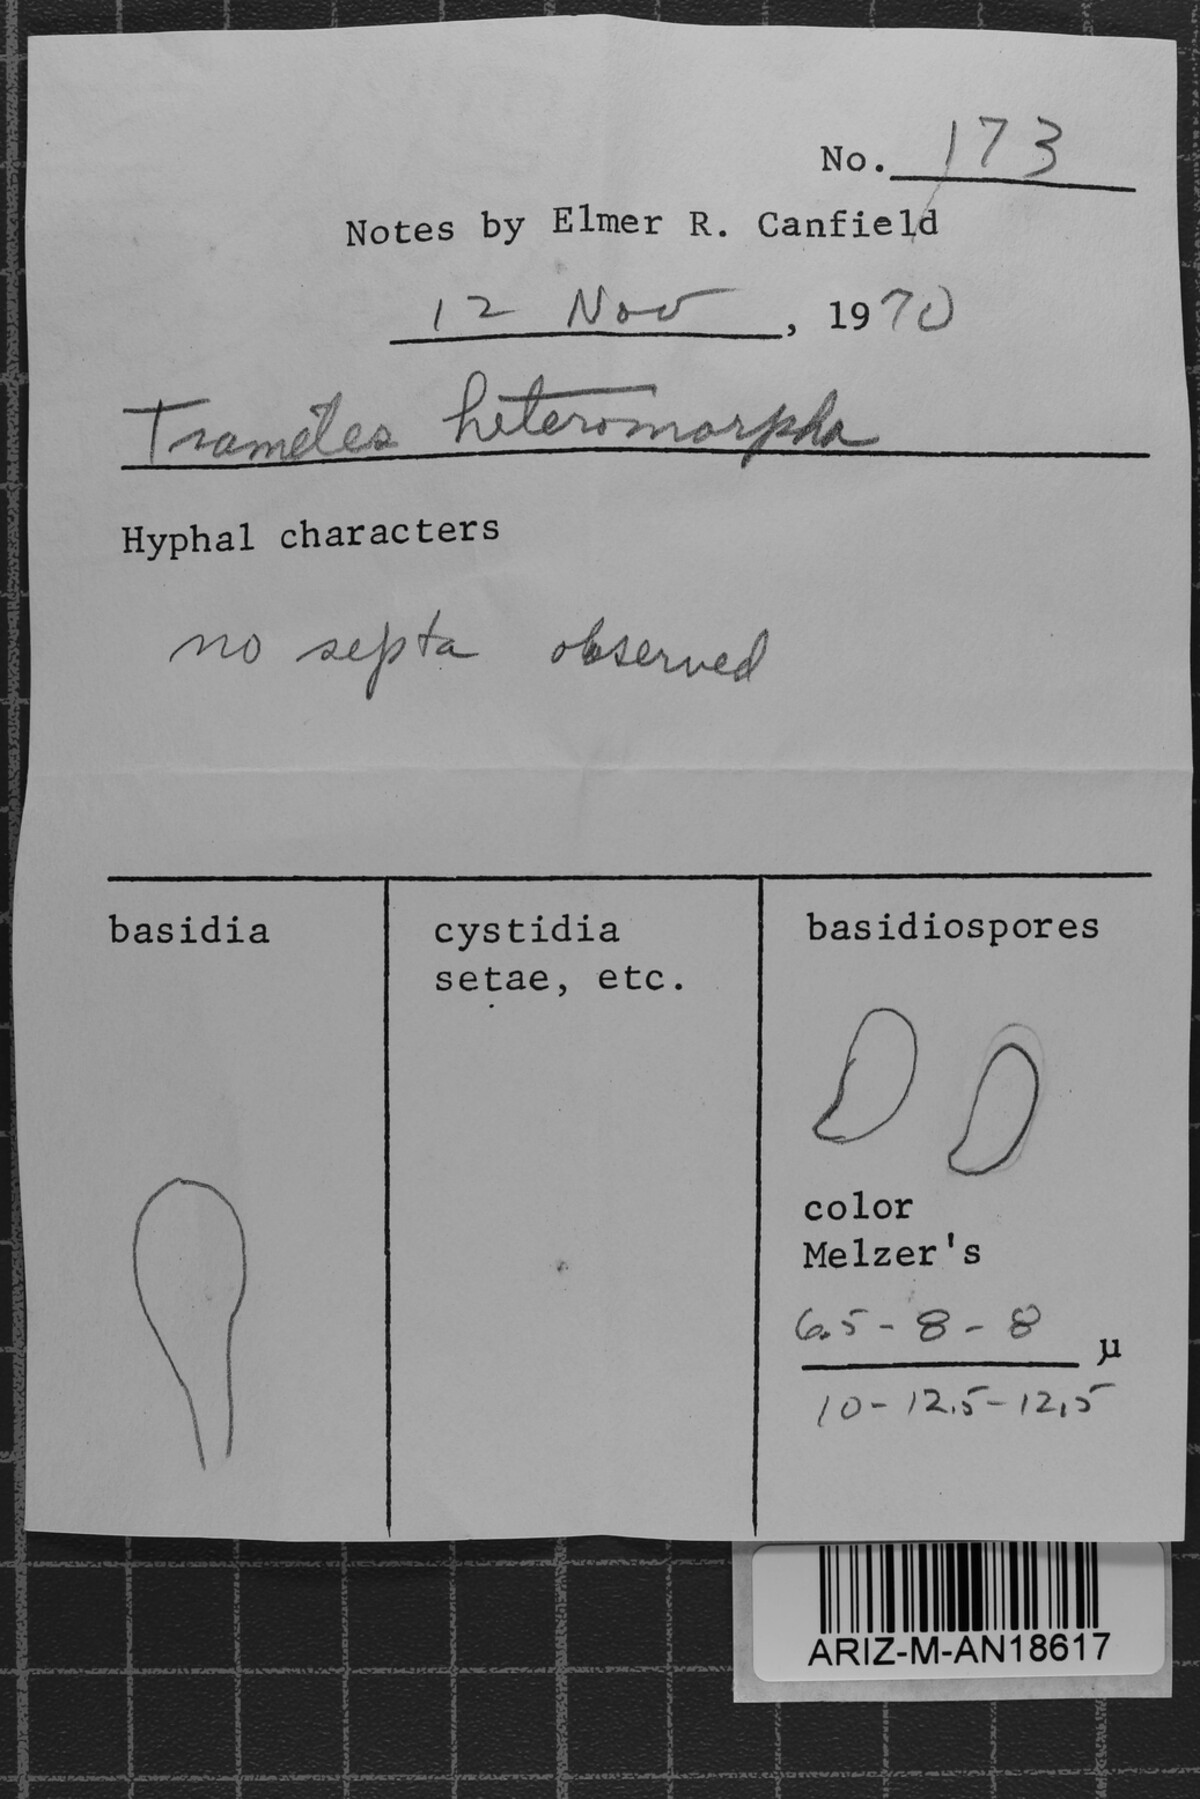 No. 173
Notes by Elmer R. Canfield
12 Nov, 1970
Trametes heteromorpha
Hyphal characters
no septa observed
basidia
cystidia
setae, etc.
basidiospores
color
Melzer's
6.5 - 8 - 8
µ
10 - 12.5 - 12.5
ARIZ-M-AN18617